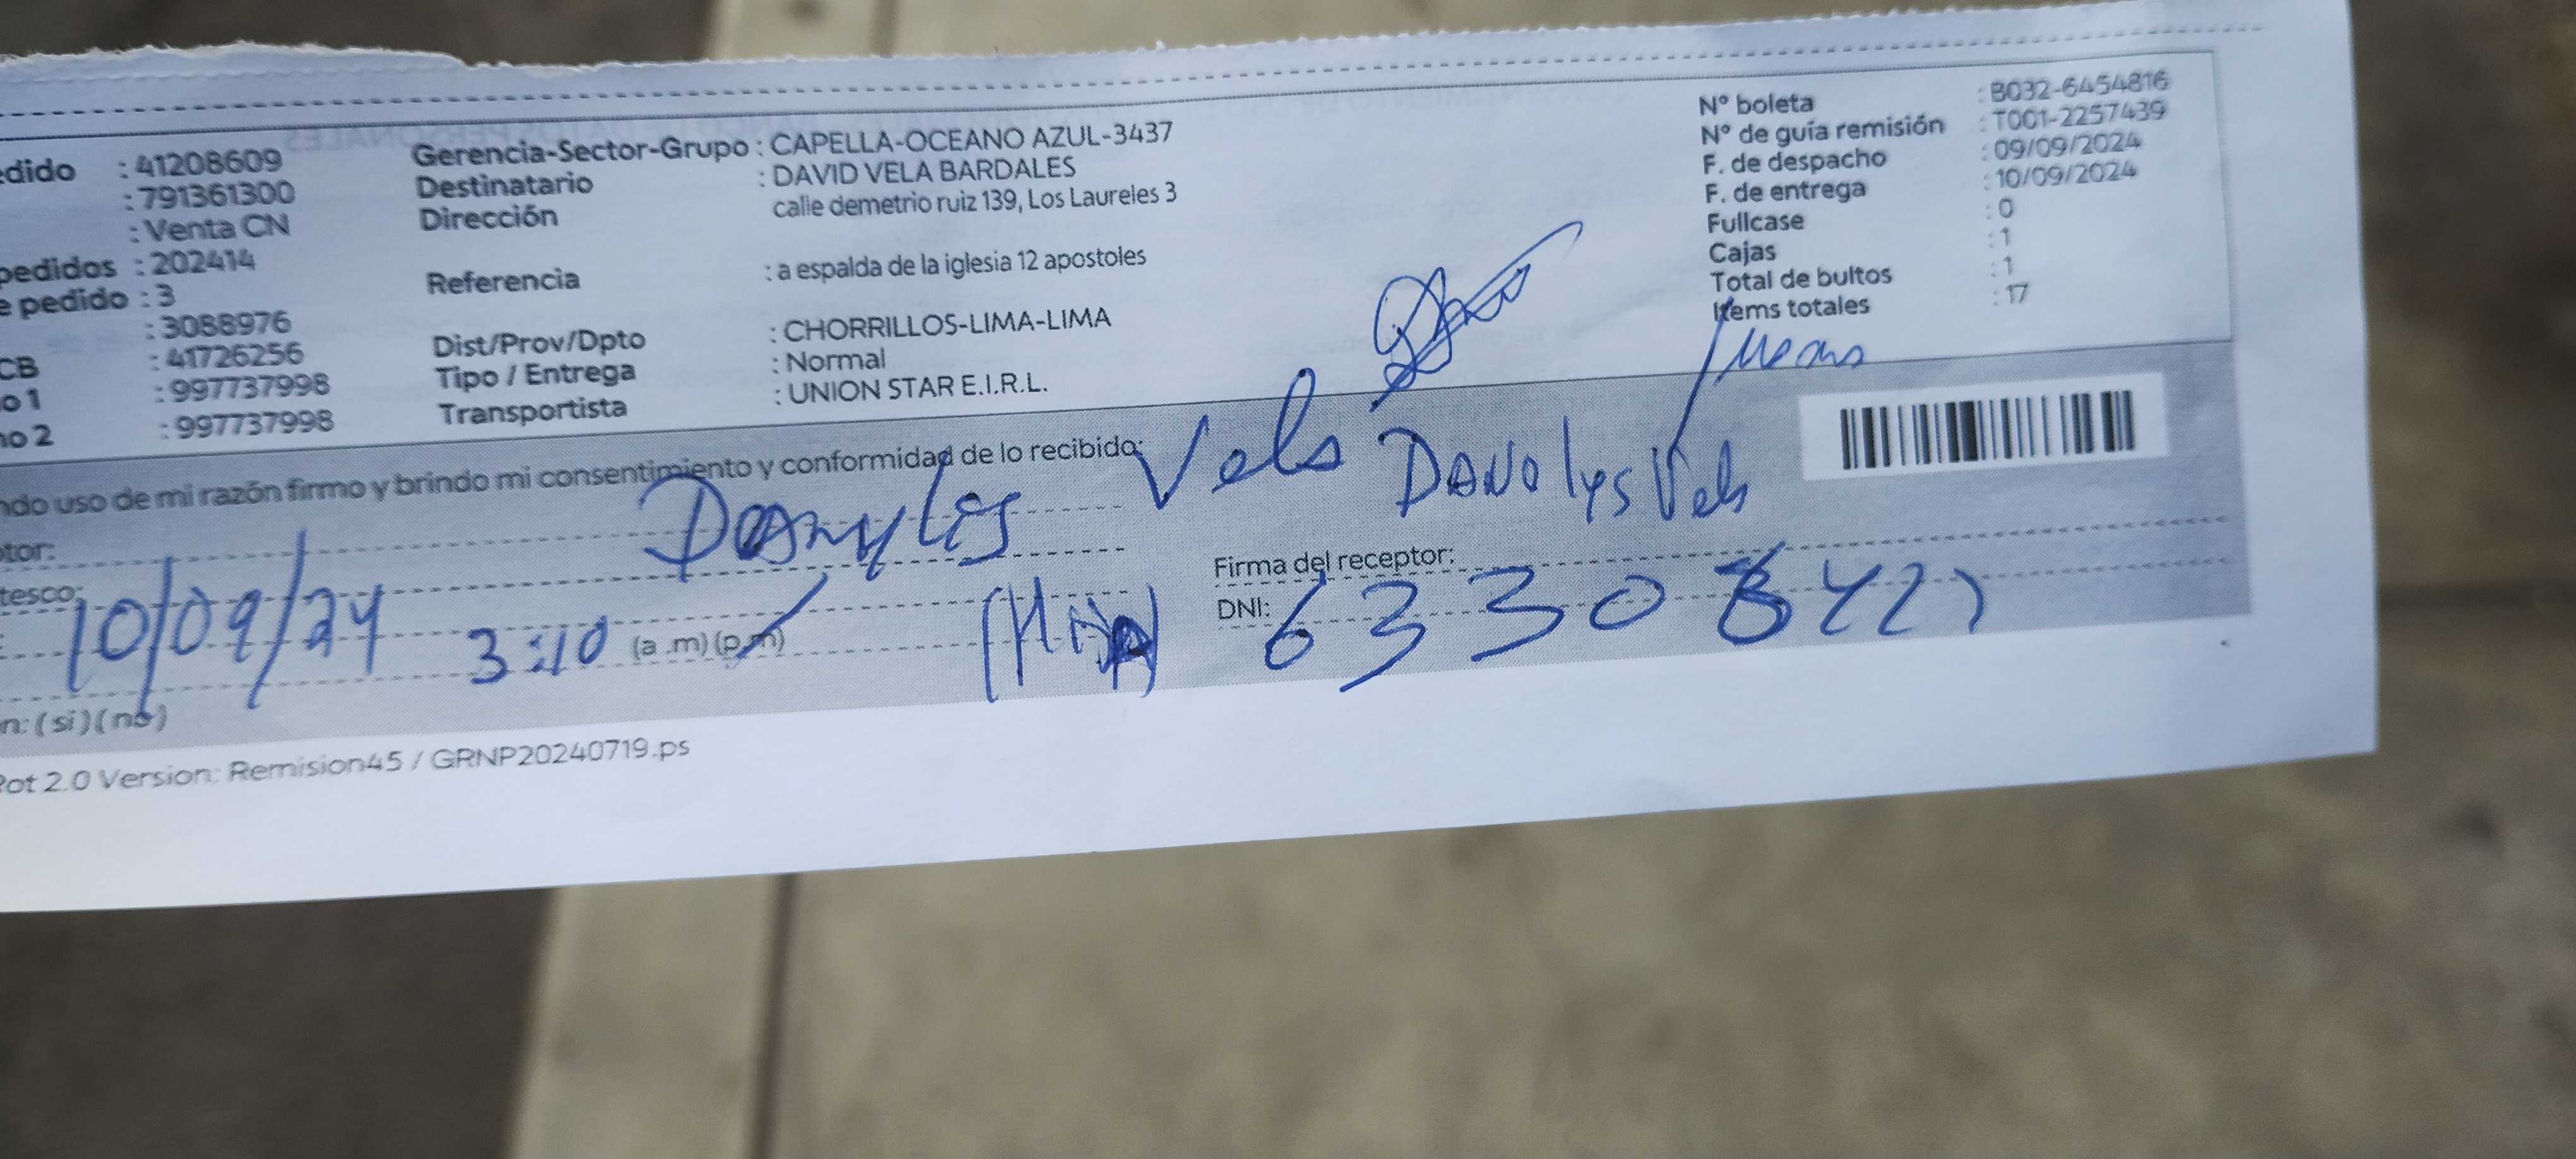 edido : 41208609
: 791361300
: Venta CN
pedidos : 202414
e pedido : 3
: 3088976
CB : 41726256
o 1 : 997737998
no 2 : 997737998
Gerencia-Sector-Grupo : CAPELLA-OCEANO AZUL-3437
Destinatario : DAVID VELA BARDALES
Dirección calle demetrio ruiz 139, Los Laureles 3
Referencia : a espalda de la iglesia 12 apostoles
Dist/Prov/Dpto : CHORRILLOS-LIMA-LIMA
Tipo / Entrega : Normal
Transportista : UNION STAR E.I.R.L.
N° boleta : B032-6454816
N° de guía remisión : T001-2257439
F. de despacho : 09/09/2024
F. de entrega : 10/09/2024
Fullcase : 0
Cajas : 1
Total de bultos : 1
Items totales : 17
ndo uso de mi razón firmo y brindo mi consentimiento y conformidad de lo recibido:
Vels
tor:
tesco:
10/09/24 3:10 (a .m) (p.m)
Firma del receptor:
DNI:
n: ( si ) ( no )
Rot 2.0 Version: Remision45 / GRNP20240719.ps